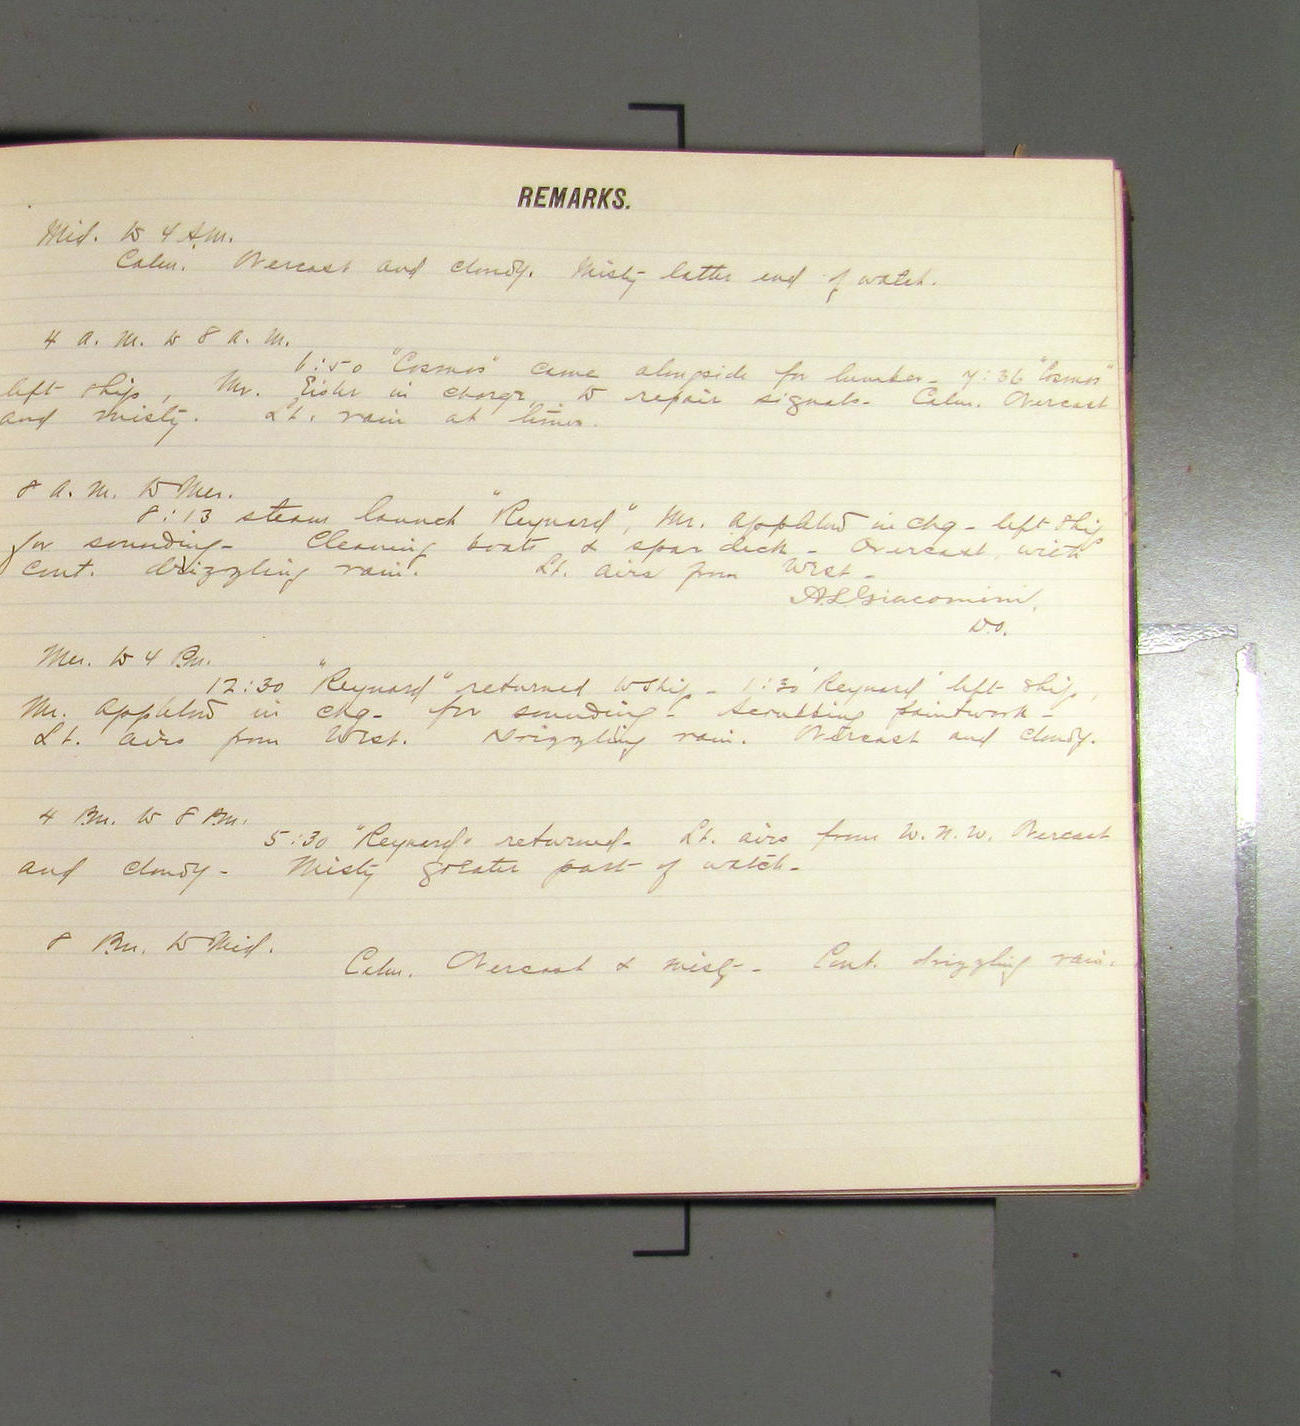 REMARKS.
Mid. to 4 A.M.
Calm. Overcast and cloudy. Misty latter end of watch.
4 a. m. to 8 a. m.
6:50 "Cosmos" came alongside for lumber - 7:36 "Cosmos"
left ship, Mr. in charge to repair signals - Calm. Overcast
and misty. Lt. rain at times.
8 a. m. to Mer.
8:13 steam launch "Reynard", Mr. Appleton in chg - left ship
for sounding - Cleaning boats & spar deck - Overcast with
cont. drizzling rain. Lt. airs from West -
A L Giacomini,
W.O.
Mer. to 4 P.m.
12:30 "Reynard" returned to ship - 1:30 "Reynard" left ship,
Mr. Appleton in chg - for sounding - Scrubbing paintwork -
Lt. airs from West. Drizzling rain. Overcast and cloudy.
4 P.m. to 8 P.m.
5:30 "Reynard" returned - Lt. airs from W.N.W. Overcast
and cloudy - Misty greater part of watch -
8 P.m. to Mid.
Calm. Overcast & misty - Cont. drizzling rain.